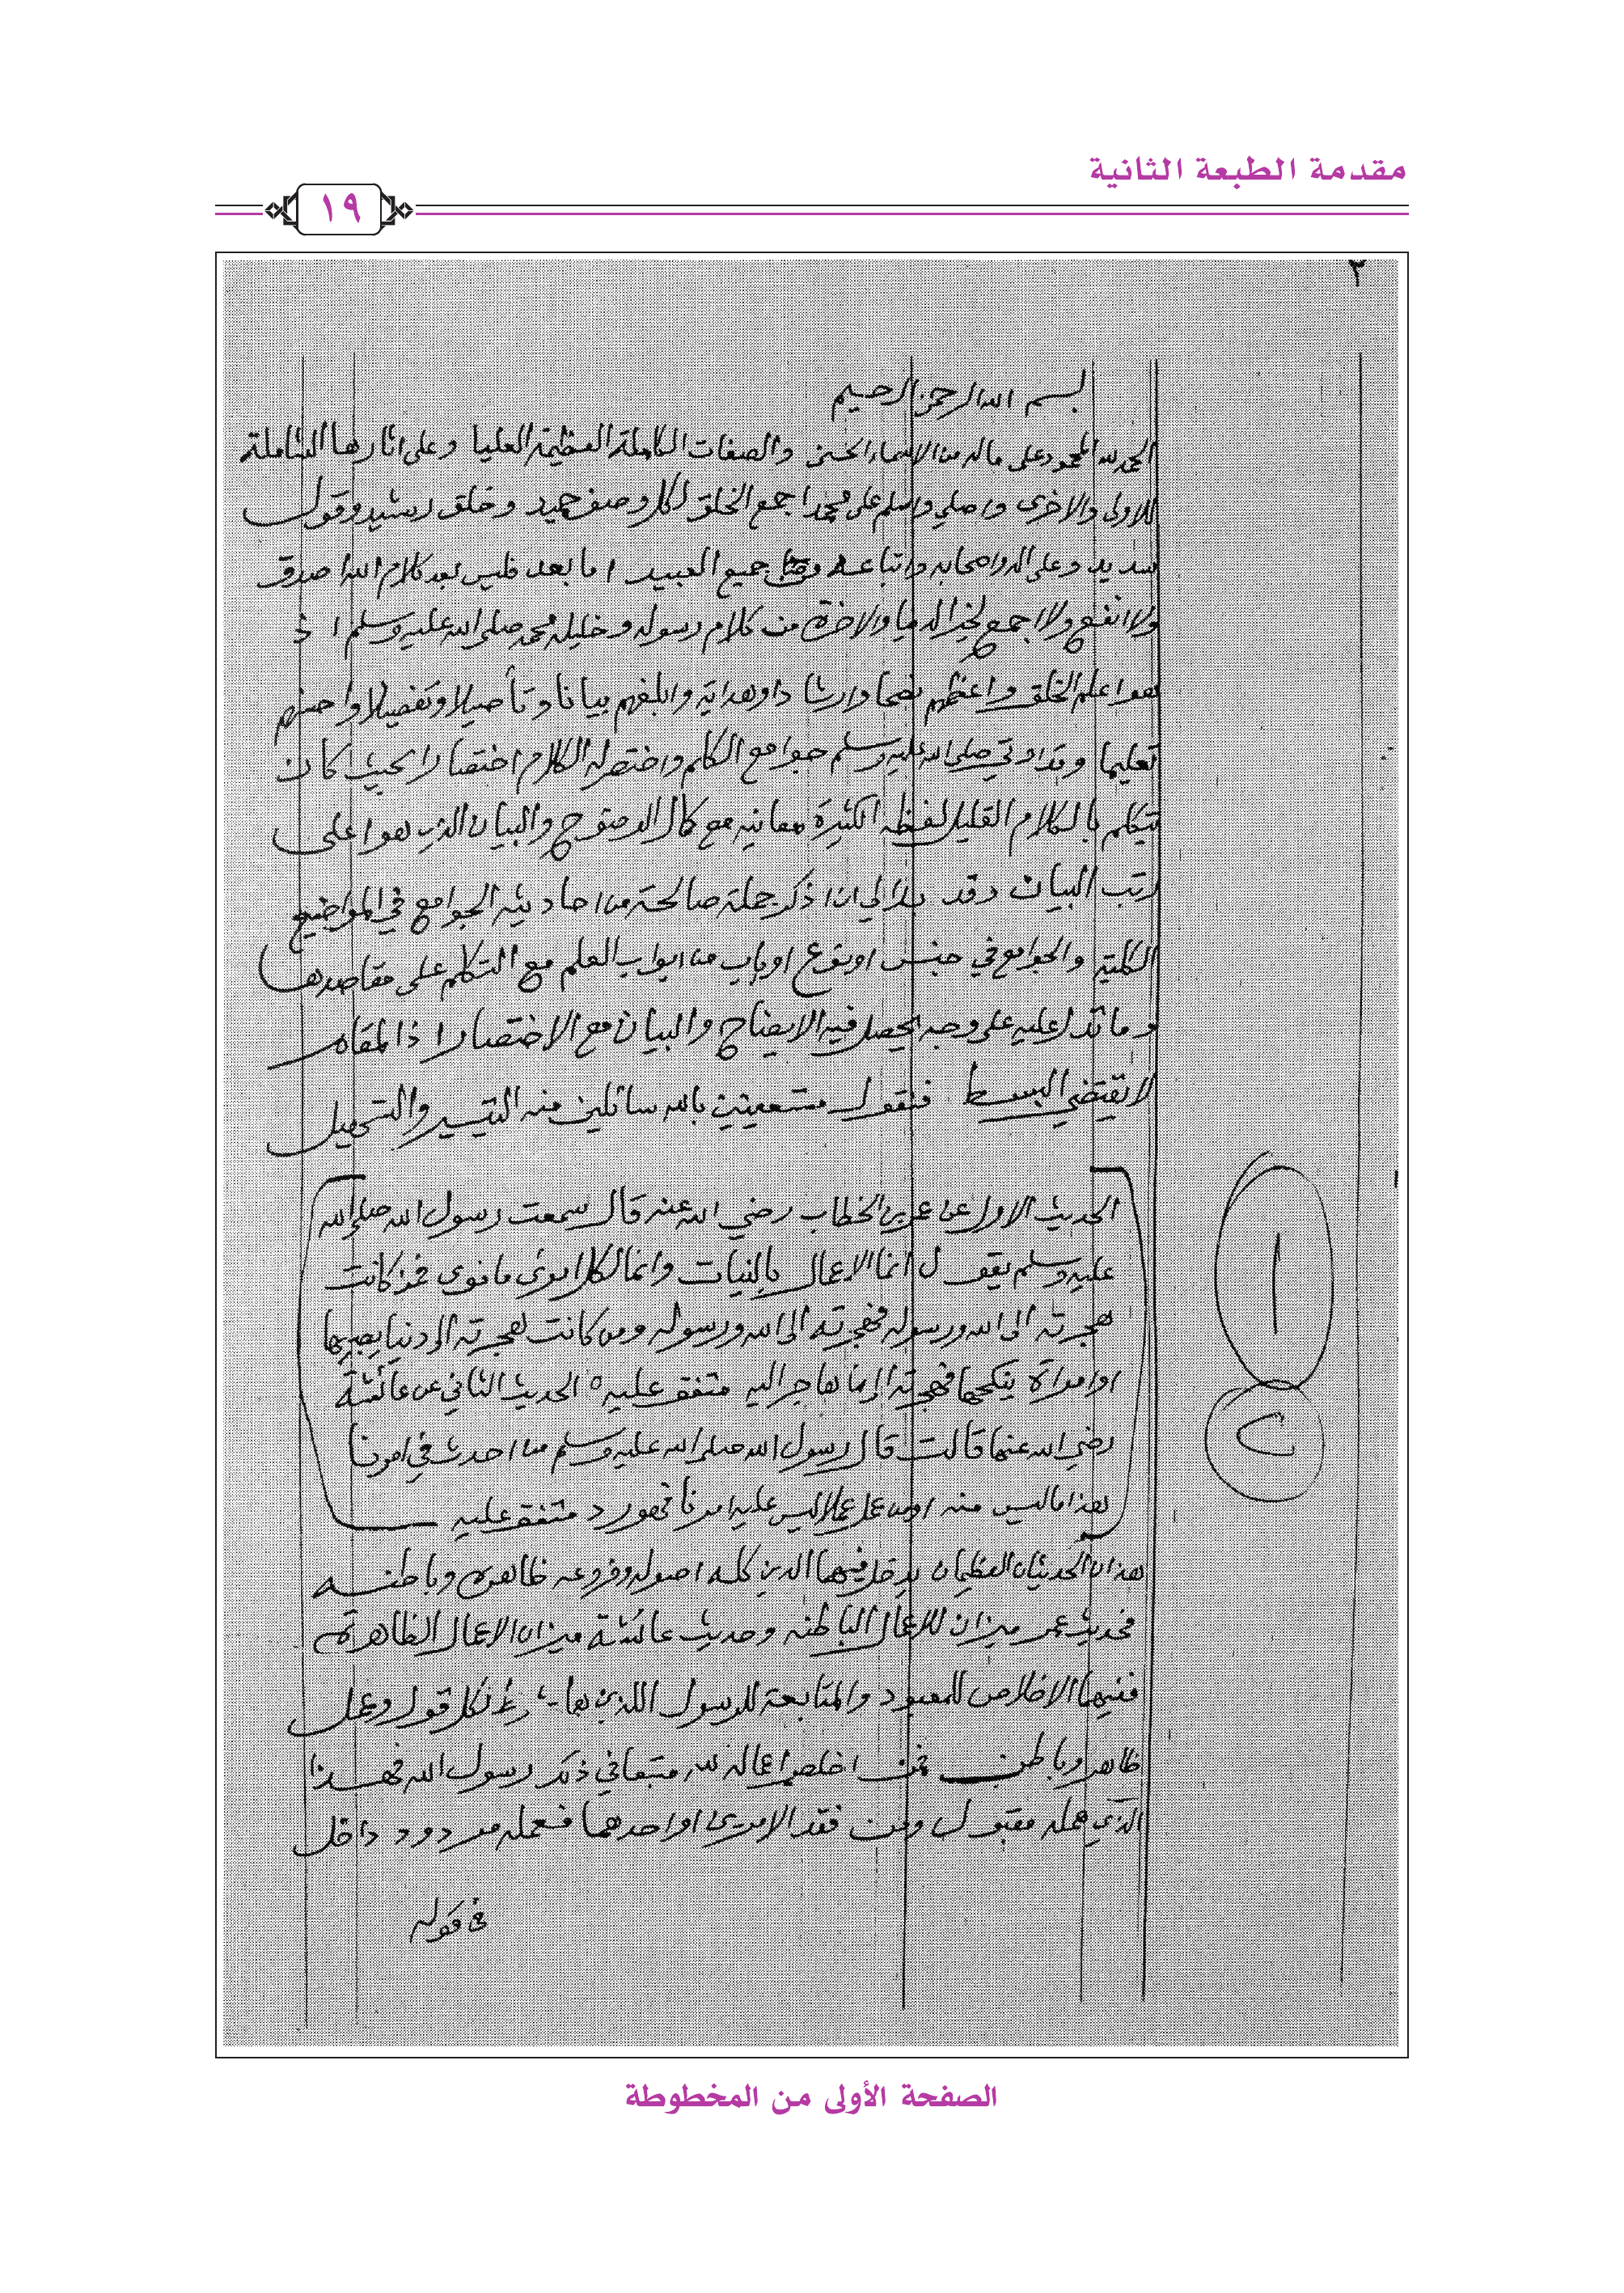 مقدمة الطبعة الثانية
١٩
٢
بسم الله الرحمن الرحيم
الحمد لله المحمود على ماله من الاسماء الحسنى والصفات الكاملة العظيمة العليا وعلى اثارها الشاملة
للاولى والاخرى واصلي واسلم على محمد اجمع الخلق لكل وصف حميد وخلق رشيد وقول
سديد وعلى اله واصحابه واتباعه جميع العبيد اما بعد فليس بعد كلام الله اصدق
ولا انفع ولا اجمع لخير الدنيا والاخرة من كلام رسوله وخليله محمد صلى الله عليه وسلم اذ
هو اعلم الخلق واعظهم نصحا وارشادا وهداية وابلغهم بيانا وتأصيلا وتفصيلا واحسنهم
تعليما وقد اوتي صلى الله عليه وسلم جوامع الكلم واختصر له الكلام اختصارا بحيث كان
يتكلم بالكلام القليل لفظه الكثيرة معانيه مع كمال الوضوح والبيان الذي هو اعلى
رتب البيان وقد بدا لي ان اذكر جملة صالحة من احاديثه الجوامع في المواضيع
الكلية والجوامع في جنس او نوع او باب من ابواب العلم مع التكلم على مقاصدها
وما تدل عليه على وجه يحصل فيه الايضاح والبيان مع الاختصار اذ المقام
لا يقتضي البسط فنقول مستعينين بالله سائلين منه التيسير والتسهيل
الحديث الاول عن عمر بن الخطاب رضي الله عنه قال سمعت رسول الله صلى الله
عليه وسلم يقول انما الاعمال بالنيات وانما لكل امرئ ما نوى فمن كانت
هجرته الى الله ورسوله فهجرته الى الله ورسوله ومن كانت هجرته الى دنيا يصيبها
او امرأة ينكحها فهجرته الى ما هاجر اليه متفق عليه ٥ الحديث الثاني عن عائشة
رضي الله عنها قالت قال رسول الله صلى الله عليه وسلم من احدث في امرنا
هذا ما ليس منه او من عمل عملا ليس عليه امرنا فهو رد متفق عليه
١
٢
هذان الحديثان العظيمان يدخل فيهما الدين كله اصوله وفروعه ظاهره وباطنه
فحديث عمر ميزان للاعمال الباطنه وحديث عائشة ميزان الاعمال الظاهرة
ففيهما الاخلاص للمعبود والمتابعة للرسول اللذين هما شرط لكل قول وعمل
ظاهر وباطن فمن اخلص اعماله لله متبعا في ذلك رسول الله فهذا
الذي عمله مقبول ومن فقد الامرين او احدهما فعمله مردود داخل
في قوله
الصفحة الأولى من المخطوطة